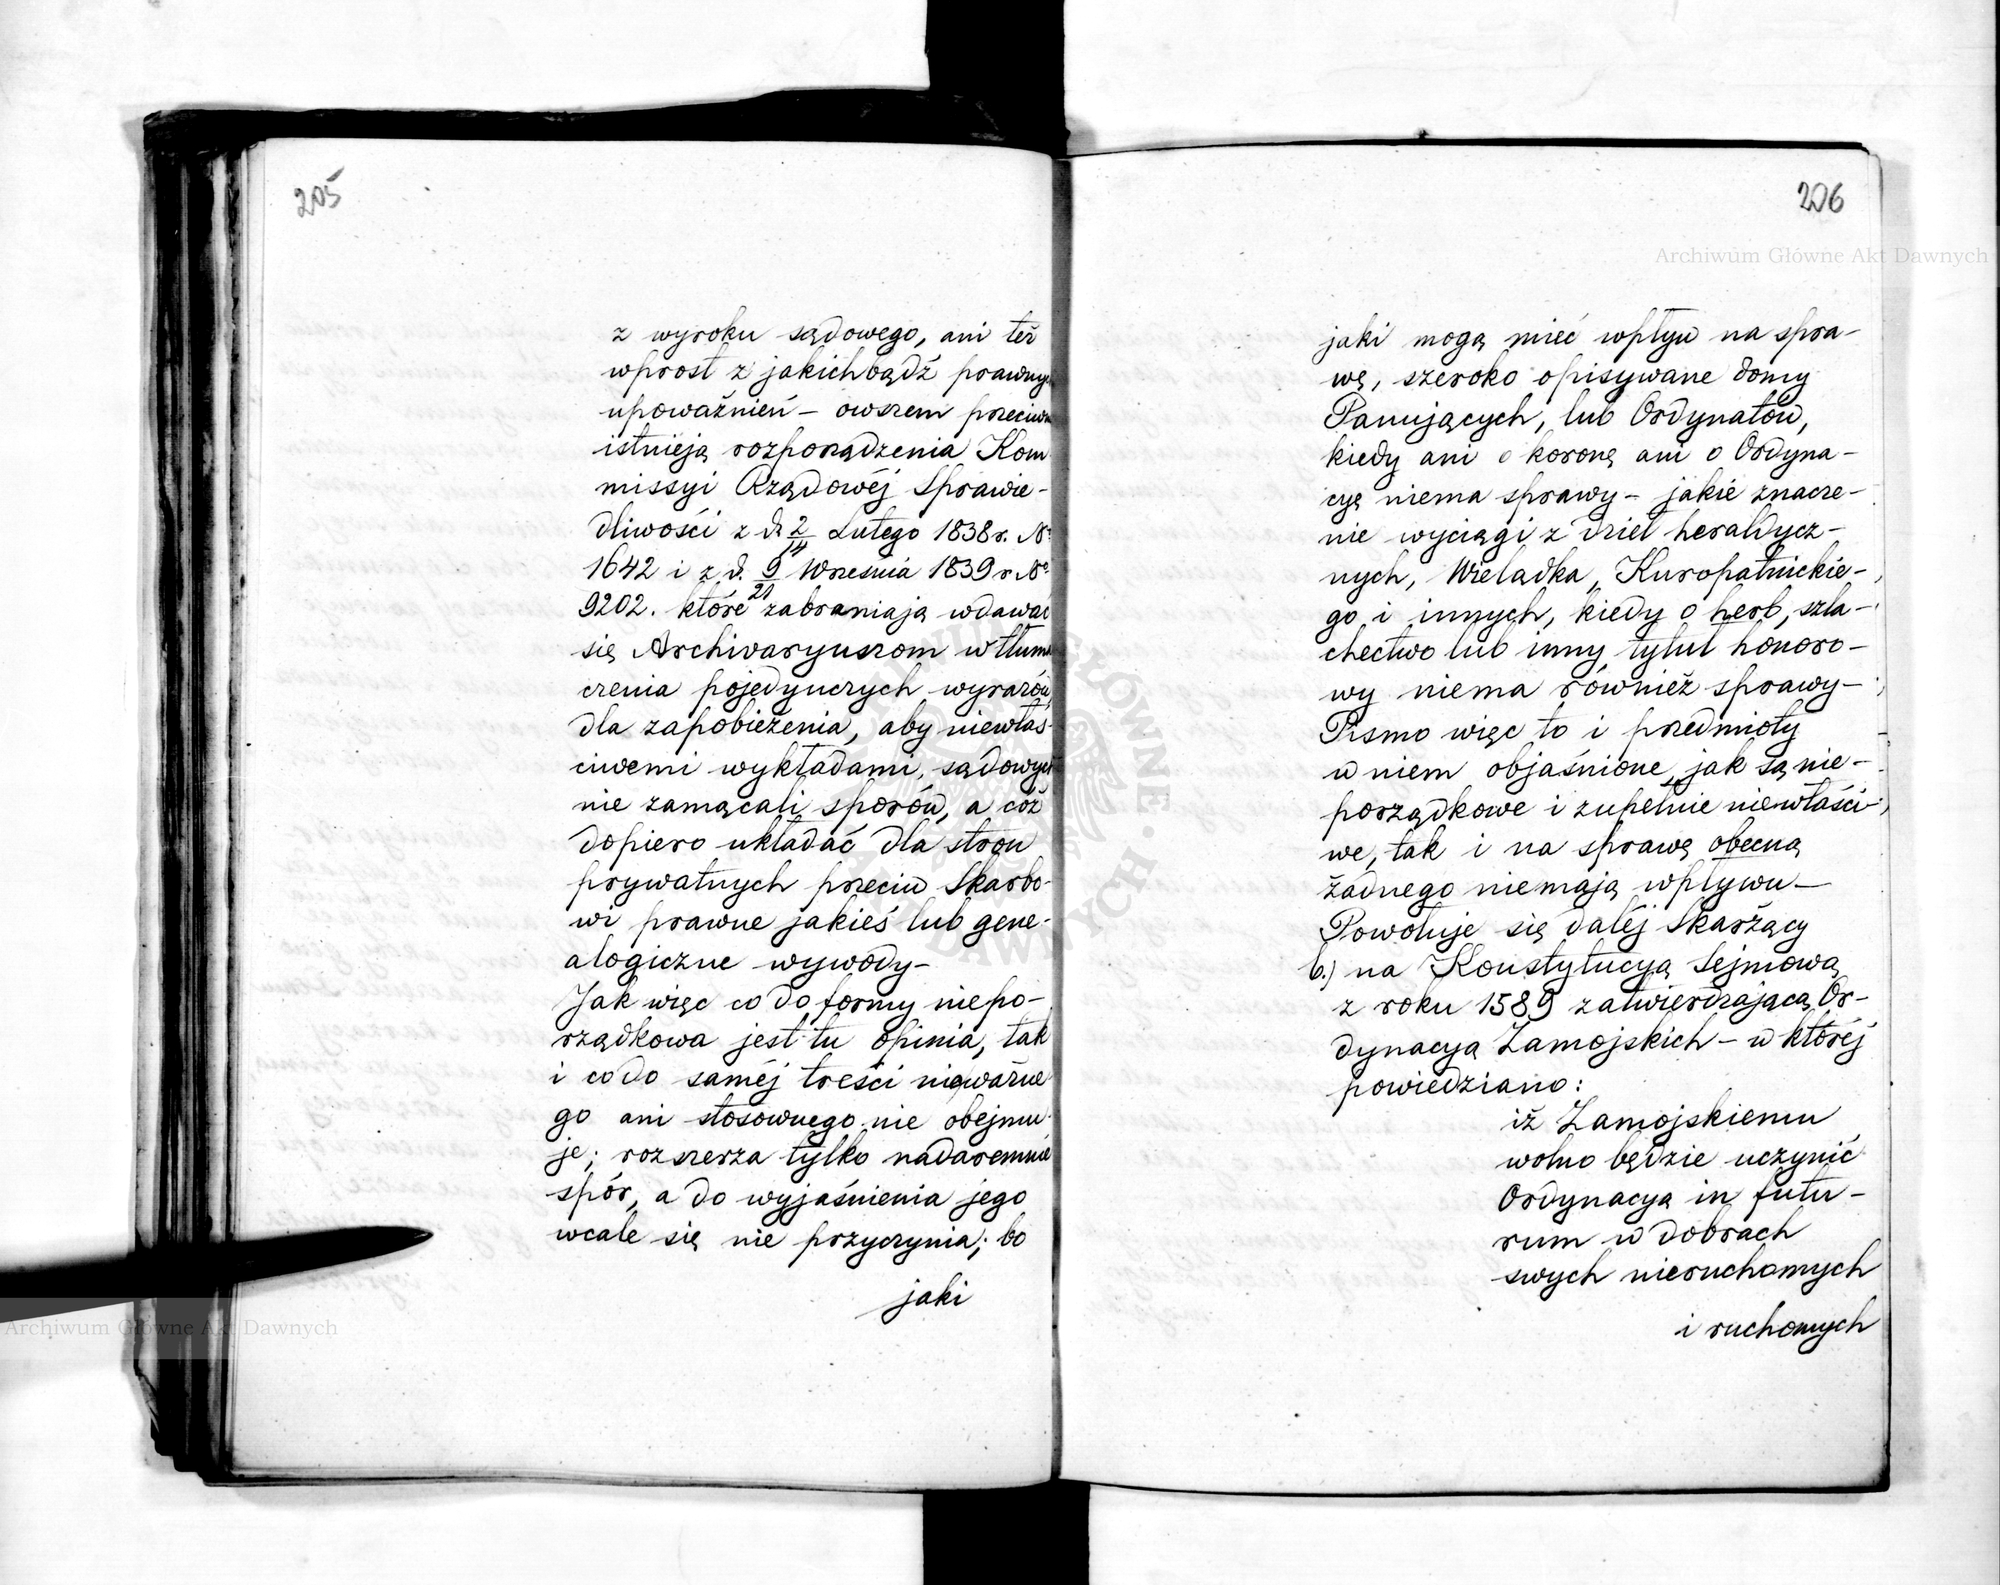 205
z wyroku sądowego, ani też
wprost z jakichbądź prawnych
upoważnień – owszem przeciwnie
istnieją rozporządzenia Kom
missyi Rządowéj Sprawie-
dliwości z d. 2/14 Lutego 1838 r. Nº
1642 i z d. 9/21 Września 1839 r. Nº
9202. które zabraniają wdawać
się Archivaryuszom w tłuma
czenia pojedynczych wyrazów,
dla zapobieżenia, aby niewłaś-
ciwemi wykładami, sądowych
nie zamącali sporów, a cóż
dopiero układać dla stron
prywatnych przeciw Skarbo-
wi prawne jakieś lub gene-
alogiczne wywody –
Jak więc co do formy niepo-
rządkowa jest tu opinia, tak
i co do saméj treści nic ważne
go ani stosownego nie obejmu-
je; rozszerza tylko nadaremnie
spór, a do wyjaśnienia jego
wcale się nie przyczynia; bo
jaki
206
jaki mogą mieć wpływ na spra-
wę, szeroko opisywane domy
Panujących, lub Ordynatów,
kiedy ani o koronę ani o Ordyna-
cyę niema sprawy – jakie znacze-
nie wyciągi z dzieł heraldycz-
nych, Wieladka, Kuropatnickie-
go i innych, kiedy o herb, szla-
chectwo lub inny tytuł honoro-
wy niema również sprawy –
Pismo więc to i przedmioty
w niem objaśnione, jak są nie-
porządkowe i zupełnie niewłaści-
we, tak i na sprawę obecną
żadnego niemają wpływu –
Powołuje się daléj Skarżący
b.) na Konstytucyą Sejmową
z roku 1589 zatwierdzającą Or-
dynacyą Zamojskich – w któréj
powiedziano:
iż Zamojskiemu
wolno będzie uczynić
Ordynacyą in futu-
rum w dobrach
swych nieruchomych
i ruchomych
Archiwum Główne Akt Dawnych
Archiwum Główne Akt Dawnych